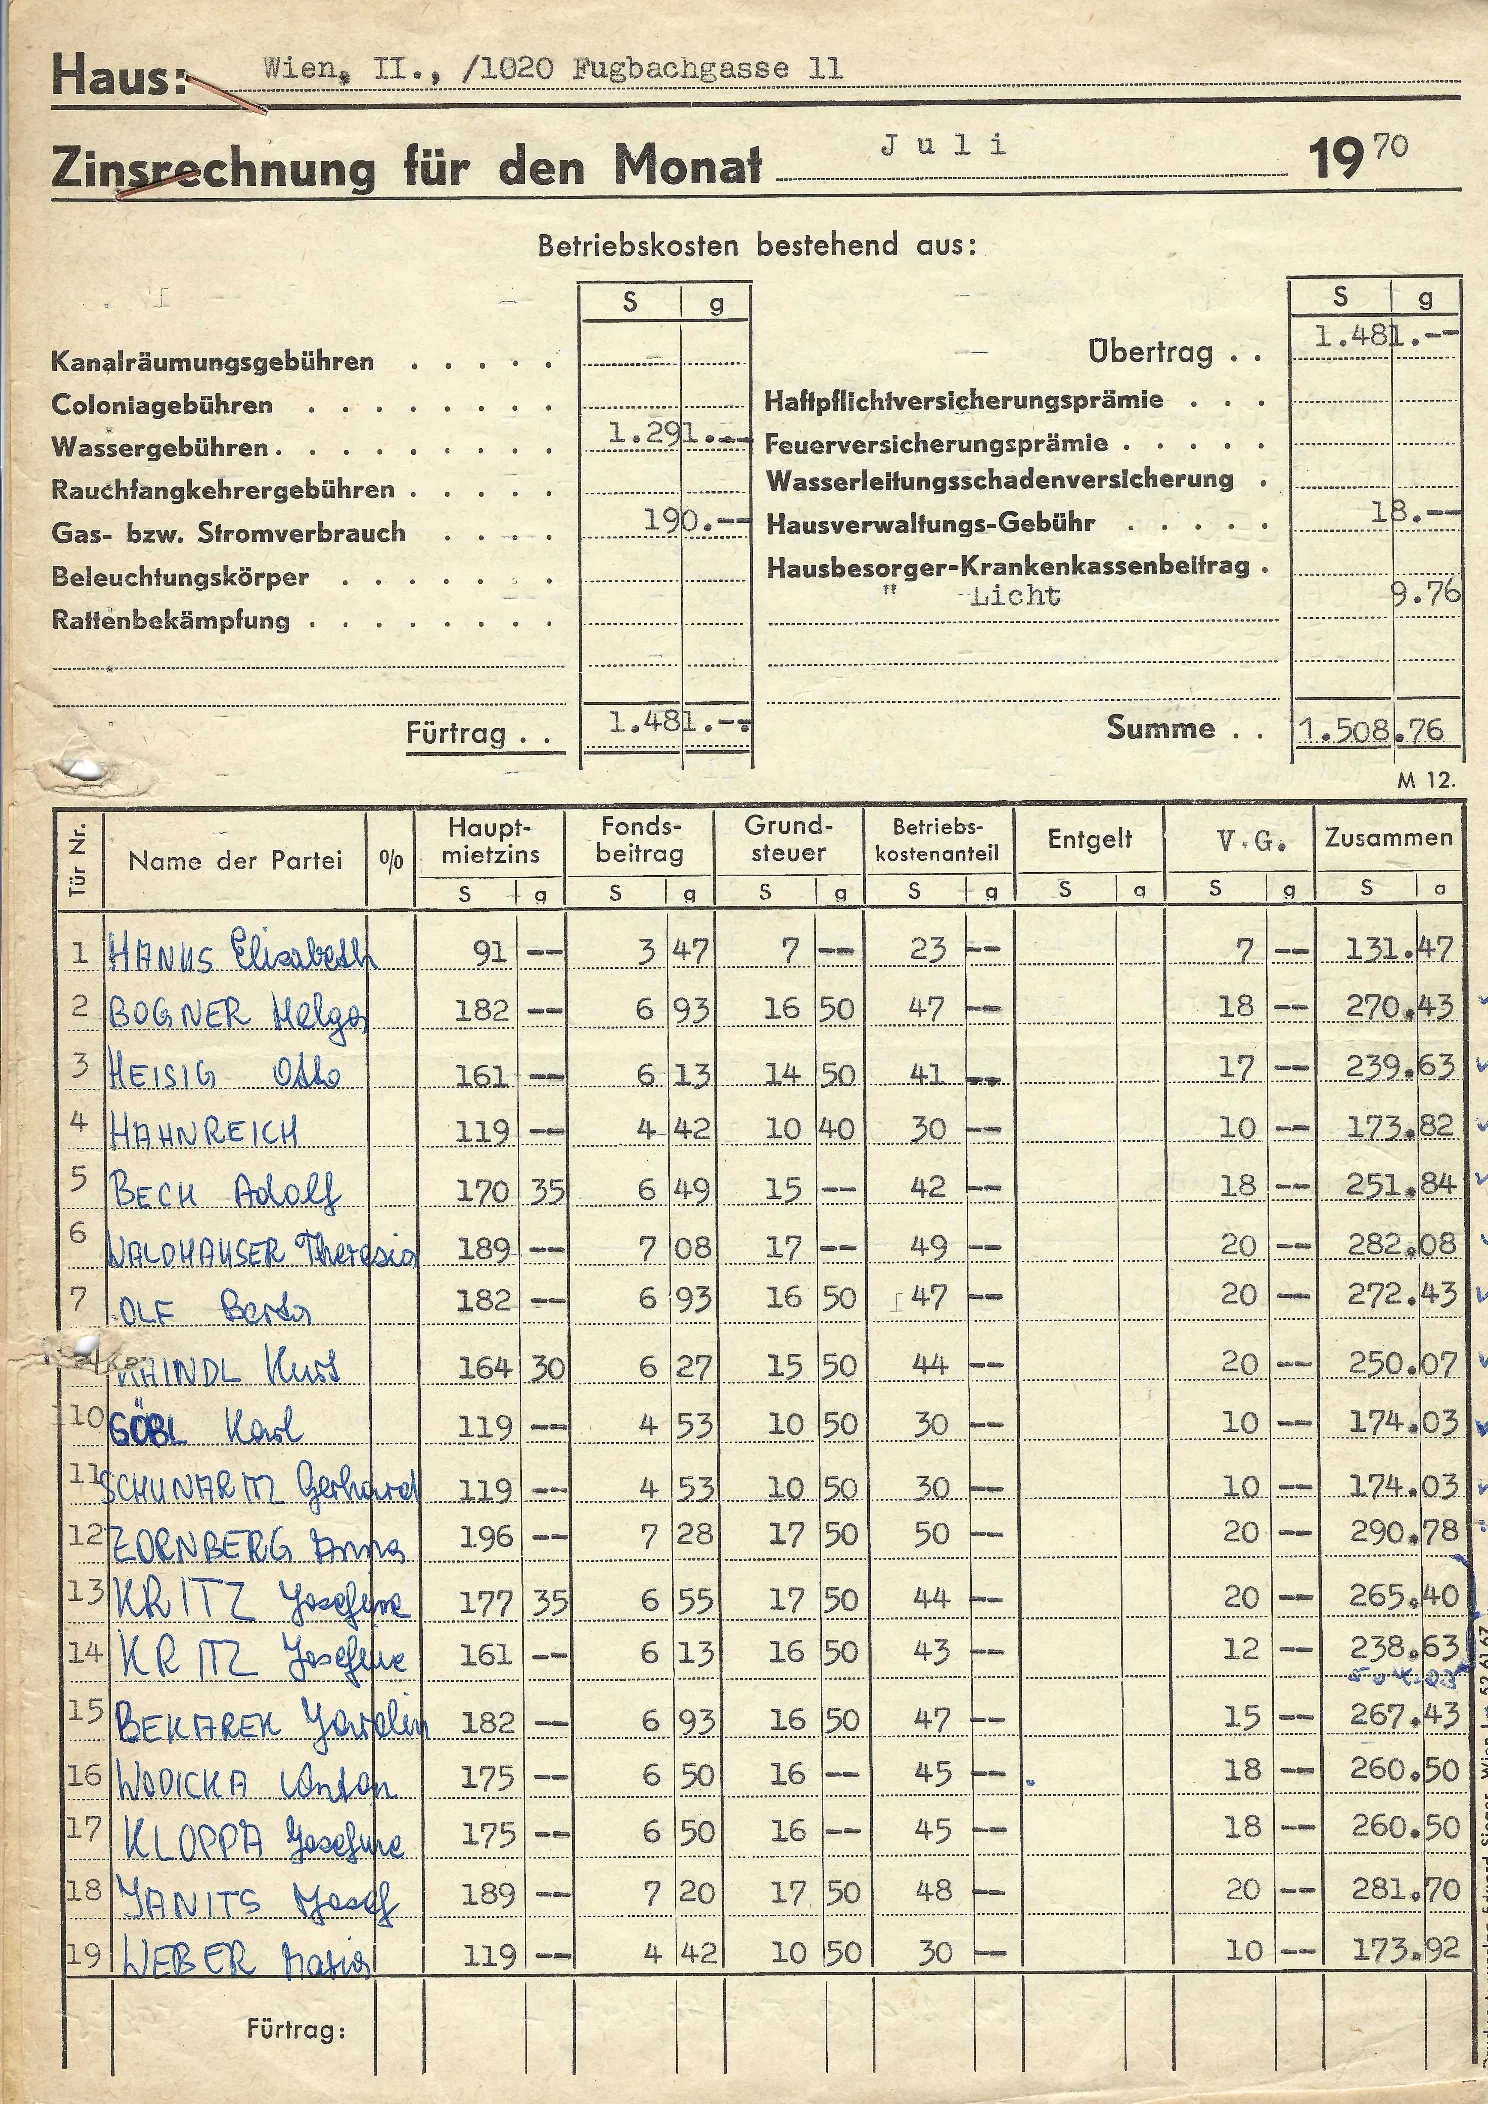 Haus: Wien, II., /1020 Fugbachgasse 11
Zinsrechnung für den Monat Juli 1970
Betriebskosten bestehend aus:
S g
Kanalräumungsgebühren . . . . .
Coloniagebühren . . . . . . . .
Wassergebühren . . . . . . . . . 1.291.--
Rauchfangkehrergebühren . . . . .
Gas- bzw. Stromverbrauch . . . . 190.--
Beleuchtungskörper . . . . . . .
Rattenbekämpfung . . . . . . . .
Fürtrag . . 1.481.--
S g
Übertrag . . 1.481.--
Haftpflichtversicherungsprämie . . .
Feuerversicherungsprämie . . . . .
Wasserleitungsschadenversicherung .
Hausverwaltungs-Gebühr . . . . . 18.--
Hausbesorger-Krankenkassenbeitrag .
" -Licht 9.76
Summe . . 1.508.76
M 12.
Tür Nr. Name der Partei % Hauptmietzins Fondsbeitrag Grundsteuer Betriebskostenanteil Entgelt V.G. Zusammen
S g S g S g S g S g S g S g
1 HANUS Elisabeth 91 -- 3 47 7 -- 23 -- 7 -- 131.47
2 BOGNER Helga 182 -- 6 93 16 50 47 -- 18 -- 270.43
3 HEISIG Otto 161 -- 6 13 14 50 41 -- 17 -- 239.63
4 HAHNREICH 119 -- 4 42 10 40 30 -- 10 -- 173.82
5 BECH Adolf 170 35 6 49 15 -- 42 -- 18 -- 251.84
6 WALDHAUSER Theresia 189 -- 7 08 17 -- 49 -- 20 -- 282.08
7 OLF Berta 182 -- 6 93 16 50 47 -- 20 -- 272.43
HAINDL Kurt 164 30 6 27 15 50 44 -- 20 -- 250.07
10 GÖBL Karl 119 -- 4 53 10 50 30 -- 10 -- 174.03
11 Gerhard 119 -- 4 53 10 50 30 -- 10 -- 174.03
12 ZORNBERG Anna 196 -- 7 28 17 50 50 -- 20 -- 290.78
13 KRITZ Josefine 177 35 6 55 17 50 44 -- 20 -- 265.40
14 KRITZ Josefine 161 -- 6 13 16 50 43 -- 12 -- 238.63
504.03
15 BEKAREK 182 -- 6 93 16 50 47 -- 15 -- 267.43
16 WODICKA Anton 175 -- 6 50 16 -- 45 -- 18 -- 260.50
17 KLOPPA Josefine 175 -- 6 50 16 -- 45 -- 18 -- 260.50
18 JANITS Josef 189 -- 7 20 17 50 48 -- 20 -- 281.70
19 WEBER Maria 119 -- 4 42 10 50 30 -- 10 -- 173.92
Fürtrag: